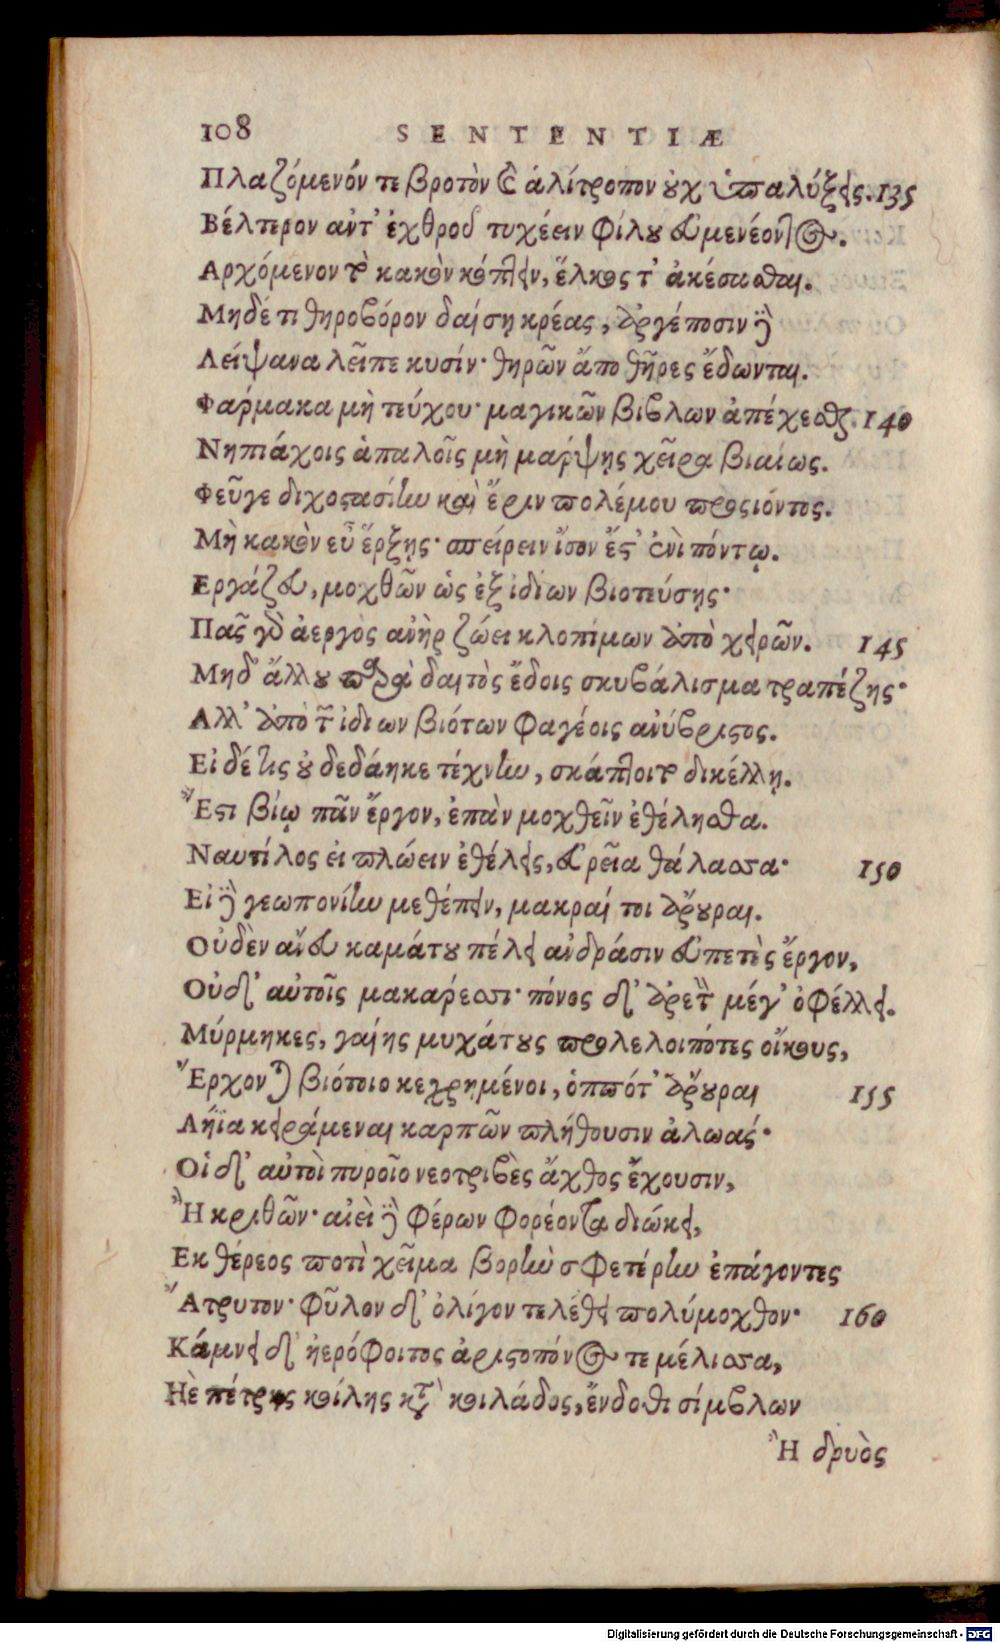 108 SENTENTIÆ
Πλαζόμενόν τε βροτὸν καὶ ἀλίτροπον οὐχ ὑπαλύξεις. 135
Βέλτερον ἀντ' ἐχθροῦ τυχέειν φίλου εὐμενέοντος.
Αρχόμενον τὸ κακὸν κόπτειν, ἕλκος τ' ἀκέσασθαι.
Μηδέ τι θηροβόρον δαίσῃ κρέας, ἀργίποσιν δὲ
Λείψανα λεῖπε κυσίν· θηρῶν ἄπο θῆρες ἔδωνται.
Φάρμακα μὴ τεύχου· μαγικῶν βίβλων ἀπέχεσθαι. 140
Νηπιάχοις ἁπαλοῖς μὴ μάρψῃς χεῖρα βιαίως.
Φεῦγε διχοστασίην καὶ ἔριν πολέμου προσιόντος.
Μὴ κακὸν εὖ ἕρξῃς· σπείρειν ἴσον ἔστ' ἐνὶ πόντῳ.
Εργάζευ, μοχθῶν ὡς ἐξ ἰδίων βιοτεύσῃς·
Πᾶς γὰρ ἀεργὸς ἀνὴρ ζώει κλοπίμων ἀπὸ χειρῶν. 145
Μηδ' ἄλλου παρὰ δαιτὸς ἔδοις σκυβάλισμα τραπέζης·
Αλλ' ἀπὸ τῶν ἰδίων βιότων φαγέοις ἀνύβριστος.
Εἰ δέ τις οὐ δεδάηκε τέχνην, σκάπτοιτο δικέλλῃ.
Ἔστι βίῳ πᾶν ἔργον, ἐπὰν μοχθεῖν ἐθέλησθα.
Ναυτίλος εἰ πλώειν ἐθέλεις, εὐρεῖα θάλασσα· 150
Εἰ δὲ γεωπονίην μεθέπειν, μακραί τοι ἄρουραι.
Οὐδὲν ἄνευ καμάτου πέλει ἀνδράσιν εὐπετὲς ἔργον,
Οὐδ' αὐτοῖς μακάρεσσι· πόνος δ' ἀρετὴν μέγ' ὀφέλλει.
Μύρμηκες, γαίης μυχάτους προλελοιπότες οἴκους,
Ἔρχονται βιότοιο κεχρημένοι, ὁππότ' ἄρουραι 155
Λήϊα κειράμεναι καρπῶν πλήθουσιν ἀλωάς·
Οἱ δ' αὐτοὶ πυροῖο νεοτριβὲς ἄχθος ἔχουσιν,
Ἢ κριθῶν· αἰεὶ δὲ φέρων φορέοντα διώκει,
Εκ θέρεος ποτὶ χεῖμα βορὴν σφετέρην ἐπάγοντες
Ἄτρυτον· φῦλον δ' ὀλίγον τελέθει πολύμοχθον· 160
Κάμνει δ' ἠερόφοιτος ἀριστοπόνος τε μέλισσα,
Ηὲ πέτρης κοίλης κατὰ κοιλάδος, ἔνδοθι σίμβλων
Ἢ δρυὸς
Digitalisierung gefördert durch die Deutsche Forschungsgemeinschaft - DFG